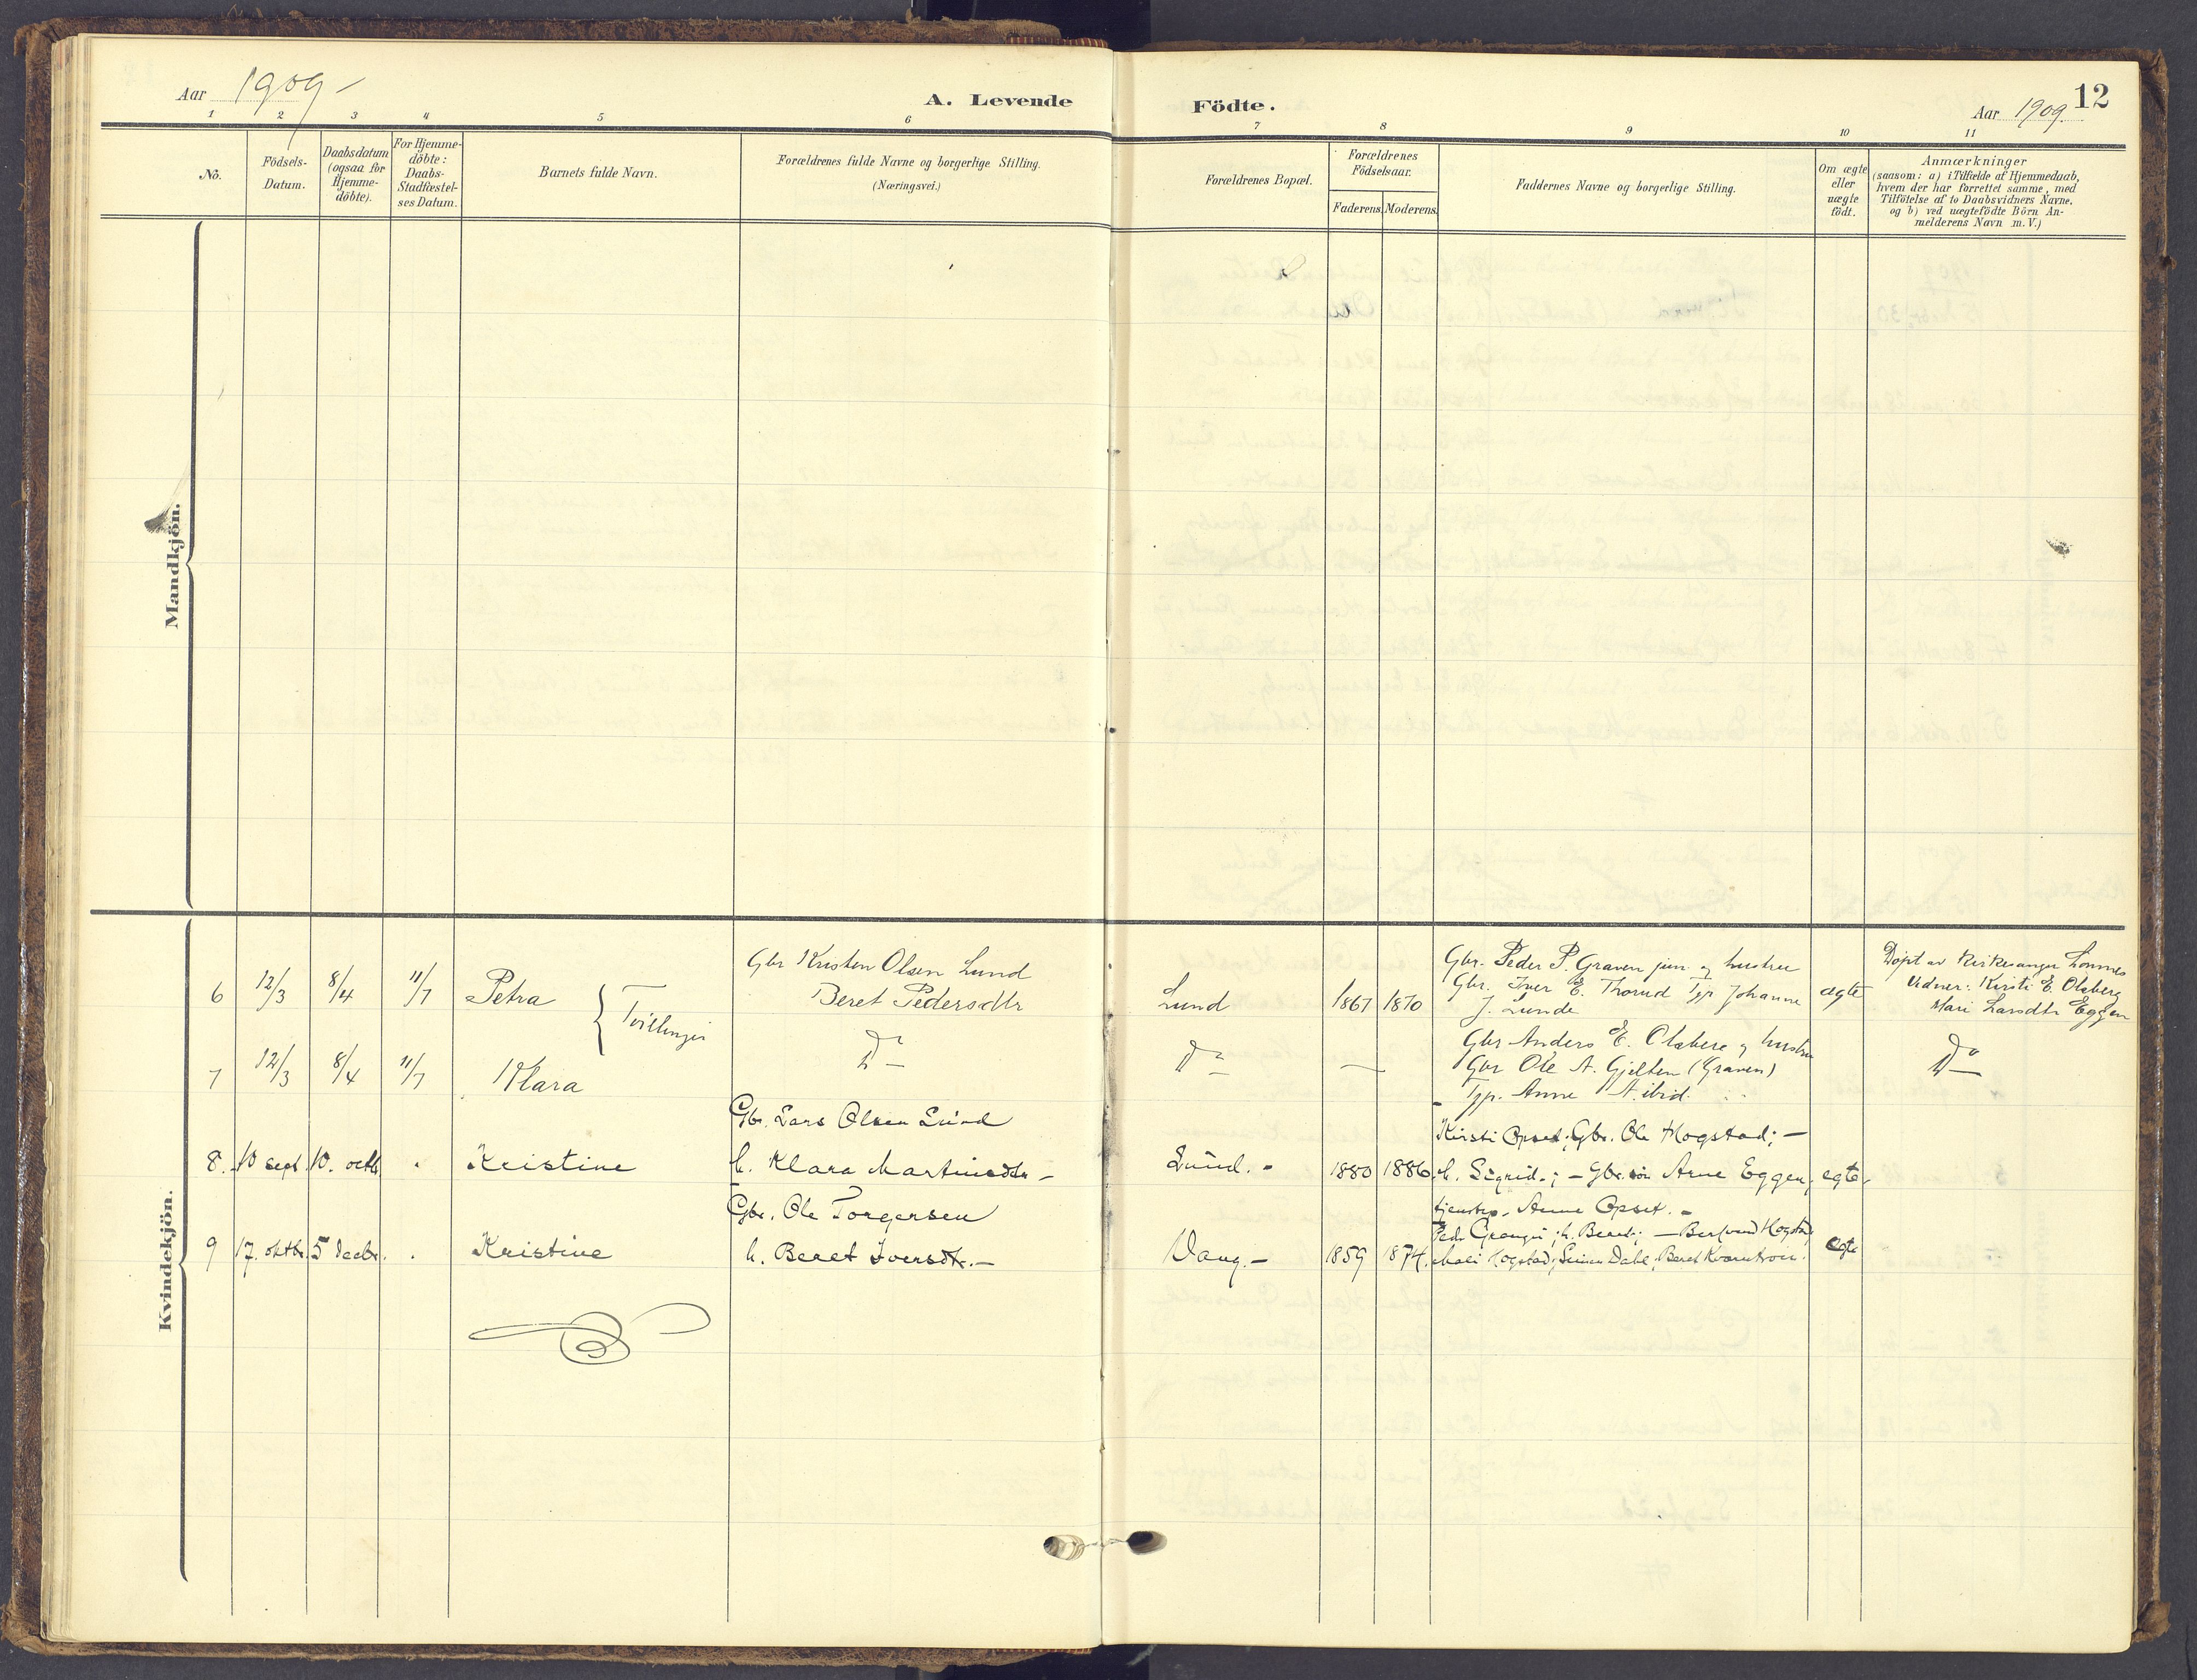 Aar 1909
A. Levende Födte.
Aar 1909.
12
1 2 3 4 5 6 7 8 9 10 11
No.
Födsels-
Datum.
Daabsdatum
(ogsaa for
Hjemme-
döbte).
For Hjemme-
döbte:
Daabs-
Stadfæstel-
ses Datum.
Barnets fulde Navn.
Forældrenes fulde Navne og borgerlige Stilling.
(Næringsvei.)
Forældrenes Bopæl.
Forældrenes
Födselsaar.
Faderens. Moderens.
Faddernes Navne og borgerlige Stilling.
Om ægte
eller
uægte
födt.
Anmærkninger
(saasom: a) i Tilfælde af Hjemmedaab,
hvem der har forrettet samme, med
Tilföielse af to Daabsvidners Navne.
og b) ved uægtefödte Börn An-
melderens Navn m.V.)
Mandkjön.
Kvindekjön.
6 12/3 8/4 11/7 Petra
Tvillinger
Gbr Kristen Olsen Lund
Beret Pedersdtr
Lund 1867 1870
Gbr. Peder P. Graven jun. og hustru
Gbr. Iver E. Thorud Tjp Johanne
J. Lunde
ægte
Døpt av Kirkesanger
Vidner: Kirsti E. Olsberg
Mari Larsdtr Eggen
7 12/3 8/4 11/7 Klara
Do
Do
—
Gbr Anders E. Olsberg og hustru
Gbr Ole A. Gjelten (Graven)
Tjp. Anne A. ibid.
Do
8. 10 sept. 10. octb. Kristine
Gbr. Lars Olsen Lund
h. Klara Martinsdtr –
Lund. 1880 1886
Kirsti Opset; Gbr. Ole Hogstad; –
h. Sigrid.; – Gbr. søn Arne Eggen;
tjenstep. Anne Opset. –
egte
9 17. oktbr. 5 decbr. Kristine
Gbr. Ole Torgersen
h. Beret Iversdtr. –
Vang. – 1859 1874.
Mali Hogstad; Dahl, Beret
egte